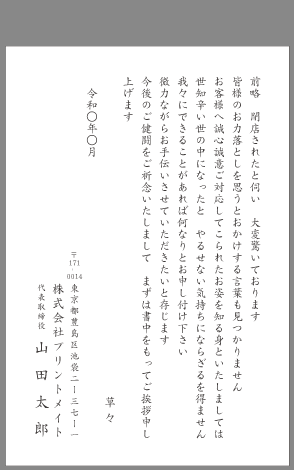 前略　閉店されたと伺い　大変驚いております
皆様のお力落としを思うとおかけする言葉も見つかりません
お客様へ誠心誠意ご対応してこられたお姿を知る身といたしましては
世知辛い世の中になったと　やるせない気持ちにならざるを得ません
我々にできることがあれば何なりとお申し付け下さい
微力ながらお手伝いさせていただきたいと存じます
今後のご健闘をご祈念いたしまして　まずは書中をもってご挨拶申し
上げます
草々
令和〇年〇月
〒171-0014
東京都豊島区池袋二ー三七ー一
株式会社プリントメイト
代表取締役　山田太郎